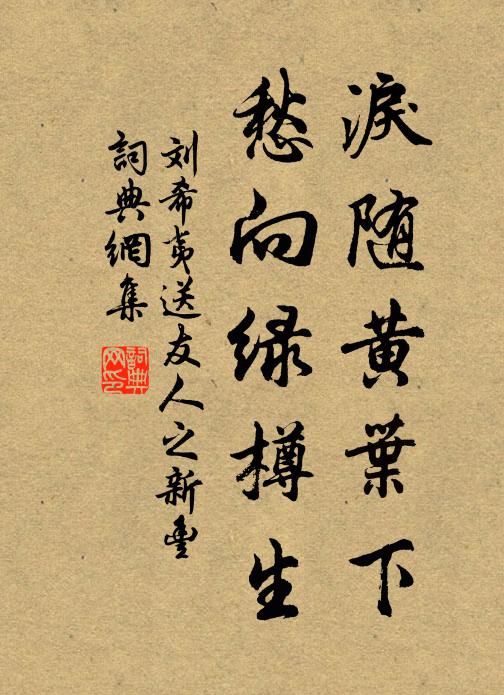 淚随黄葉下
愁向绿樽生
刘希夷送友人之新豐
詞典網集
詞典网印